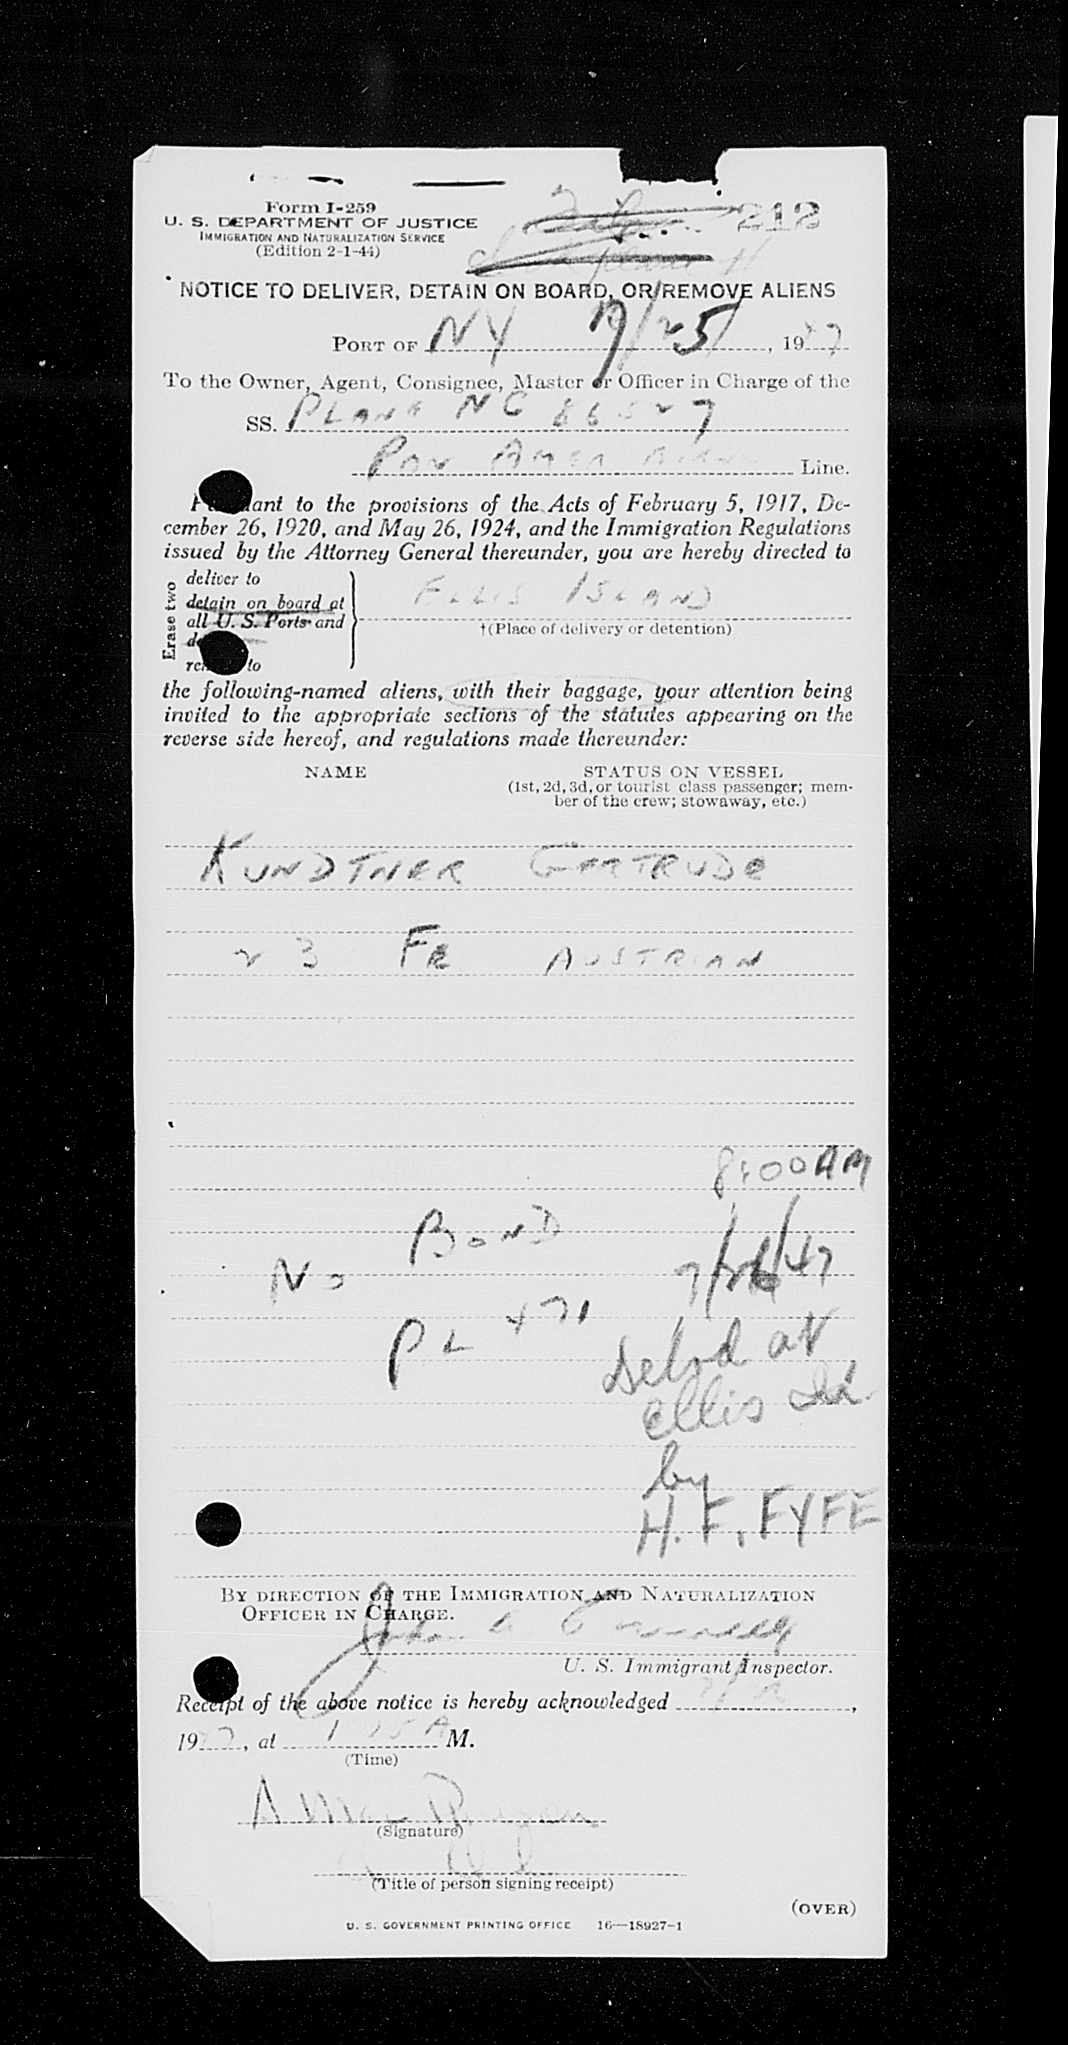 Form I-259
U. S. DEPARTMENT OF JUSTICE
IMMIGRATION AND NATURALIZATION SERVICE
(Edition 2-1-44)
212
NOTICE TO DELIVER, DETAIN ON BOARD, OR REMOVE ALIENS
PORT OF NY 7/25/, 1947
To the Owner, Agent, Consignee, Master or Officer in Charge of the
SS. PLANE NC 86527
PAN AMER Line.
Pursuant to the provisions of the Acts of February 5, 1917, De-
cember 26, 1920, and May 26, 1924, and the Immigration Regulations
issued by the Attorney General thereunder, you are hereby directed to
Erase two
deliver to
detain on board at
all U. S. Ports and
to
ELLIS ISLAND
†(Place of delivery or detention)
the following-named aliens, with their baggage, your attention being
invited to the appropriate sections of the statutes appearing on the
reverse side hereof, and regulations made thereunder:
NAME
STATUS ON VESSEL
(1st, 2d, 3d, or tourist class passenger; mem-
ber of the crew; stowaway, etc.)
KUNDTNER GERTRUDE
23 FE AUSTRIAN
8:00 AM
NO BOND
7/26/47
PL 471
Delvd at
Ellis Isl.
by
H. F. FYFE
BY DIRECTION OF THE IMMIGRATION AND NATURALIZATION
OFFICER IN CHARGE.
John
U. S. Immigrant Inspector.
Receipt of the above notice is hereby acknowledged ,
19 7, at 1 15 A M.
(Time)
(Signature)
(Title of person signing receipt)
(OVER)
U. S. GOVERNMENT PRINTING OFFICE 16—18927-1